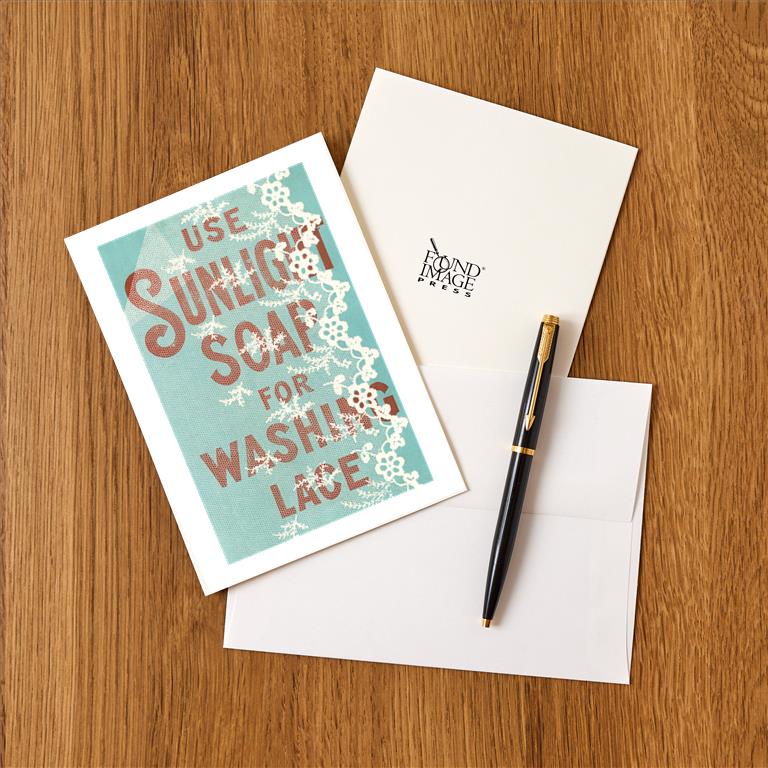 USE
SUNLIGHT
SOAP
FOR
WASHING
LACE
FOUND
IMAGE
PRESS